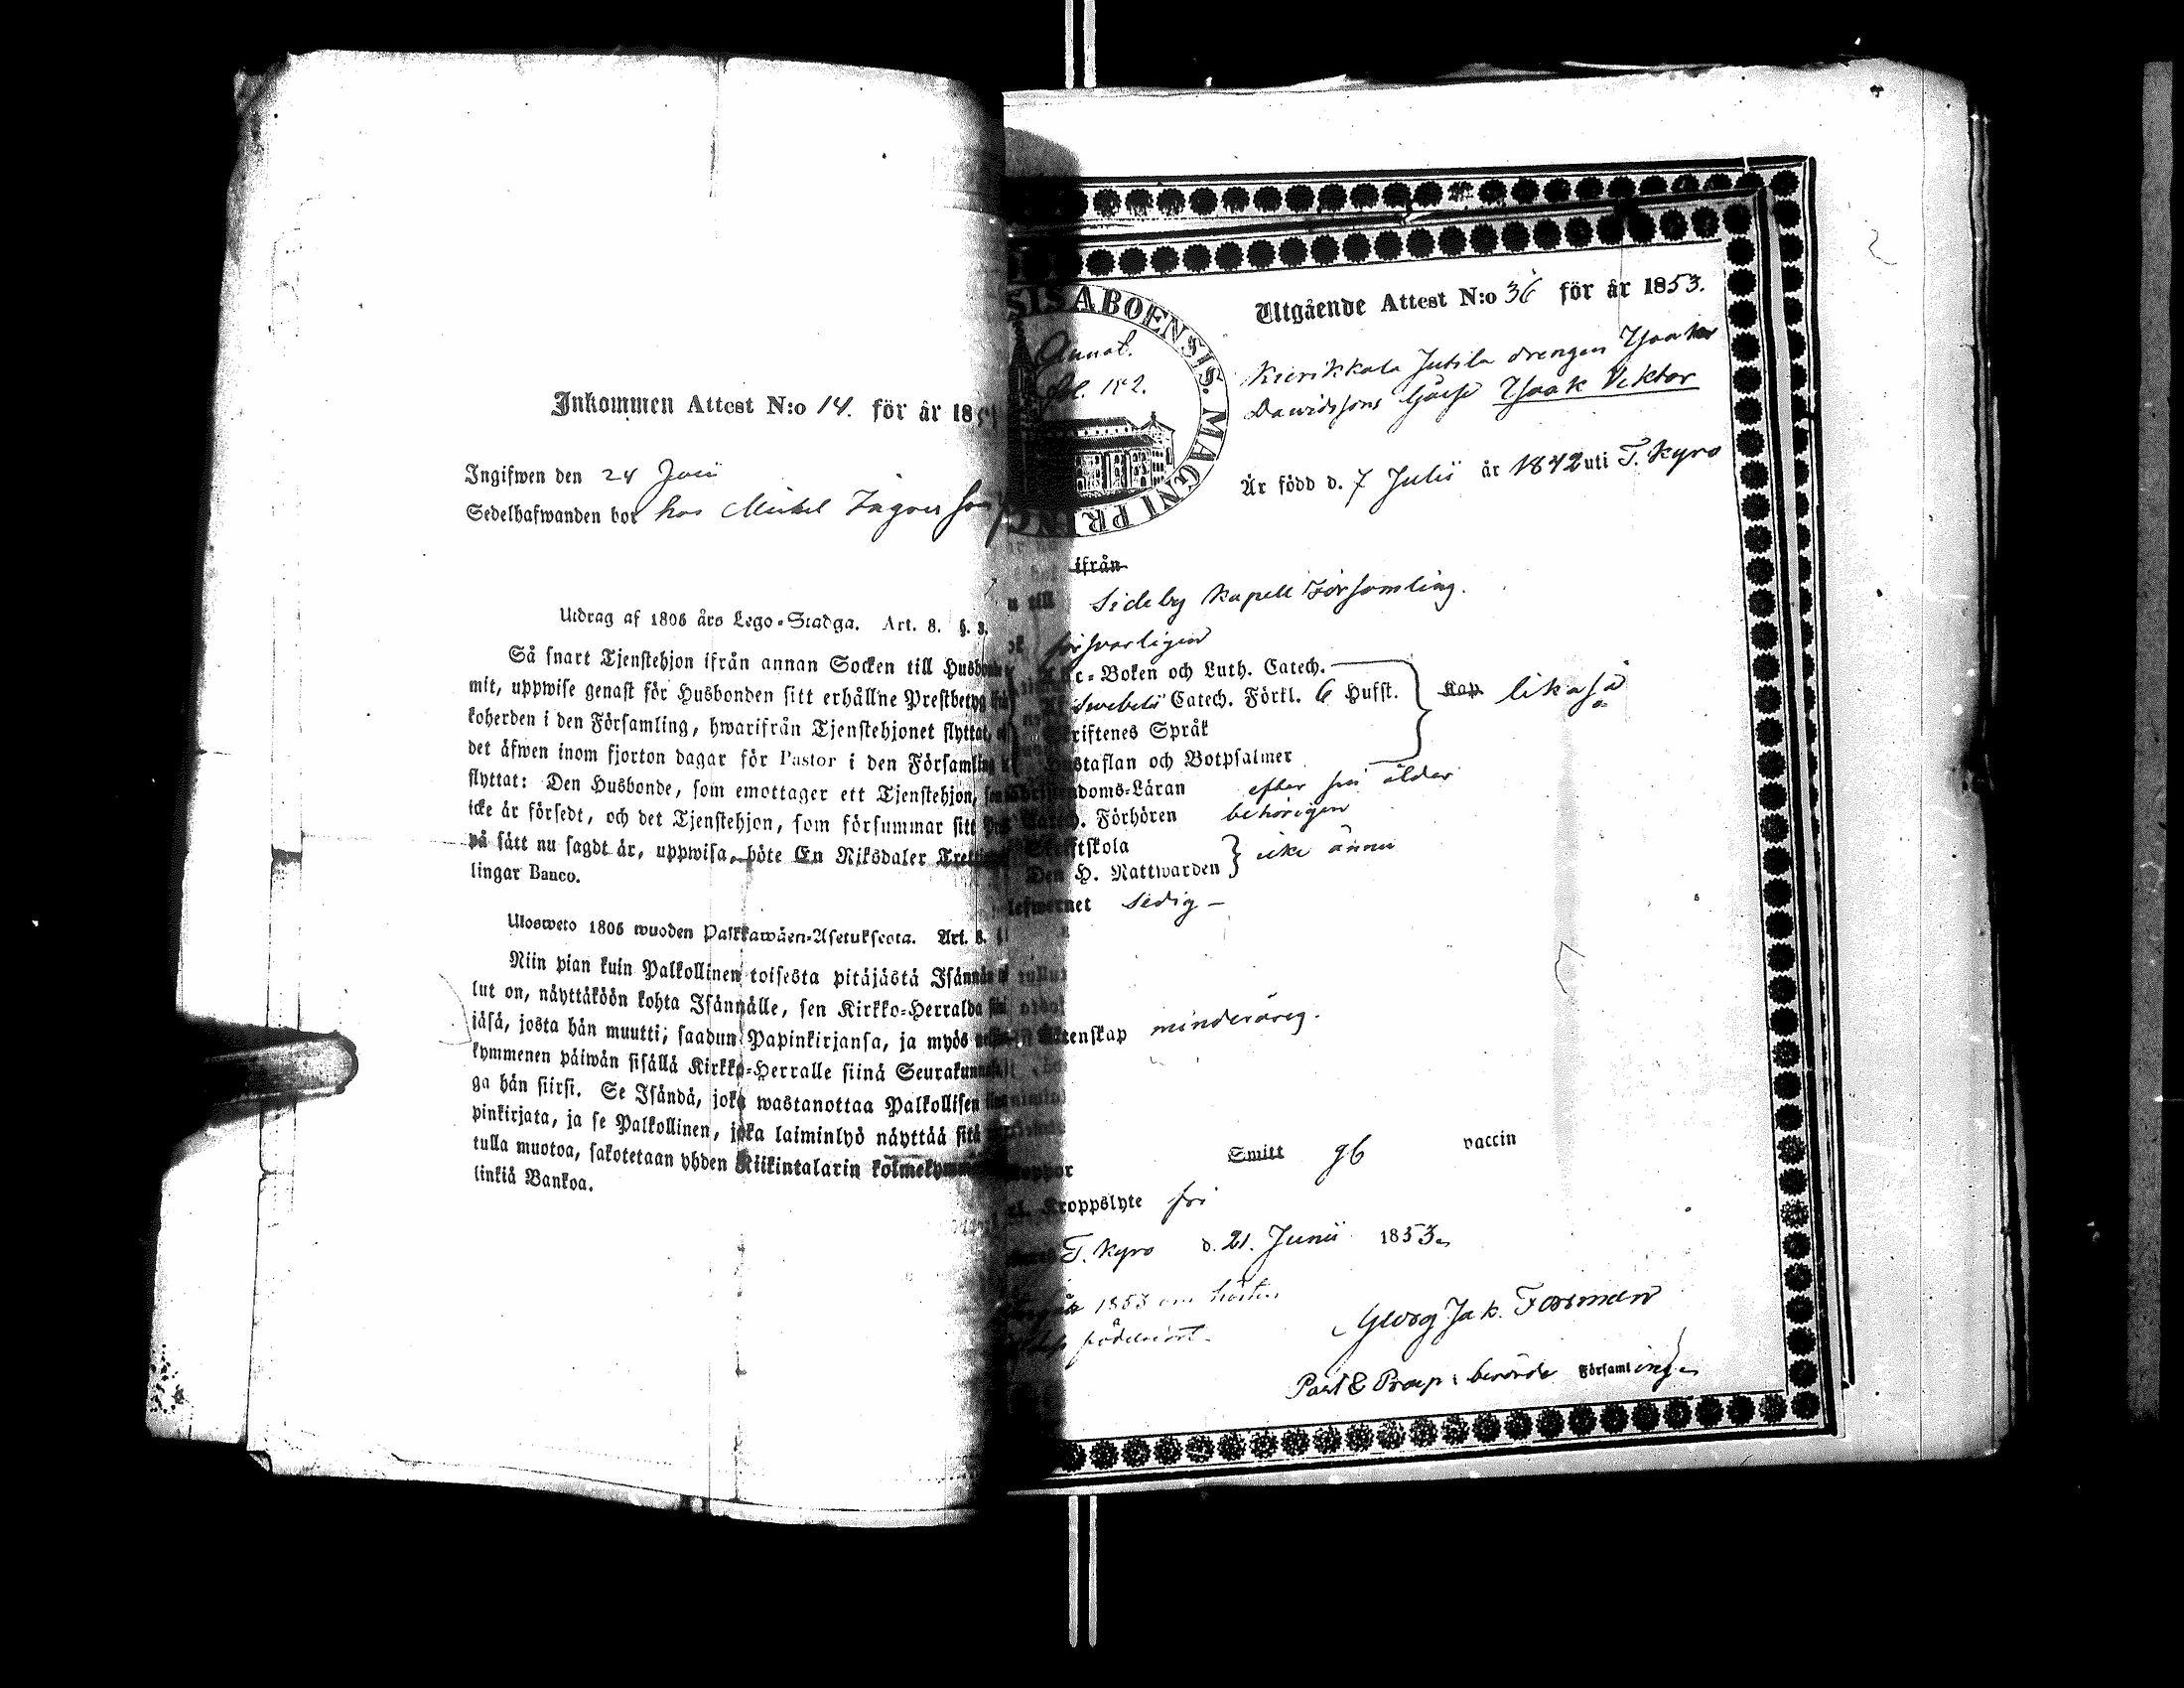 Inkommen Attest N:o 14. för år 185
Ingifwen den 24 Juni
Sedelhafwanden bor hos Mickel
Utdrag af 1806 års Lego-Stadga. Art. 8. §. 3.
Så snart Tjenstehjon ifrån annan Socken till Husbonde
mit, uppwise genast för Husbonden sitt erhållne Prestbetyg
koherden i den Församling, hwarifrån Tjenstehjonet flyttat,
det äfwen inom fjorton dagar för Pastor i den Församling
flyttat: Den Husbonde, som emottager ett Tjenstehjon,
icke är försedt, och det Tjenstehjon, som försummar sitt
på sätt nu sagdt är, uppwisa, böte En Riksdaler
lingar Banco.
Ulosweto 1806 wuoden Palkkawäen-Asetuksesta. Art. 8.
Niin pian kuin Palkollinen toisesta pitäjästä
lut on, näyttäköön kohta Isännälle, sen Kirkko-Herralda
jäsä, josta hän muutti; saadun Papinkirjansa, ja myös
kymmenen päiwän sisällä Kirkko-Herralle siinä
ga hän siirsi. Se Isändä, joka wastanottaa Palkollisen
pinkirjata, ja se Palkollinen, joka laiminlyö näyttää sitä
tulla muotoa, sakotetaan yhden Riikintalarin
linkiä Bankoa.
SIS ABOENSIS. MAGNI PRINC
Annot.
Utgående Attest N:o 36 för år 1853.
Kierikkala Jutila drengen Isaak
Dawidssons Gåsse Isaak Viktor
Är född d. 7 Julii år 1842 uti T. Kyro
ifrån
till Sideby Kapell Församling.
försvarligen
c-Boken och Luth. Catech.
Swebelii Catech. Förkl. 6 Hufst. Kap likaså
riftenes Språk
Hustaflan och Botpsalmer
doms-Läran efter sin ålder
Förhören behörigen
Skriftskola
Den H. Nattwarden icke ännu
lefwernet sedig –
Äktenskap minderårig.
Koppor Smitt gb vaccin
el. Kroppslyte fri
T. Kyro d. 21. Junii 1853.
1853 om hösten
födelseort.
Georg Jak. Forsman
Past & Præp i berörde Församling